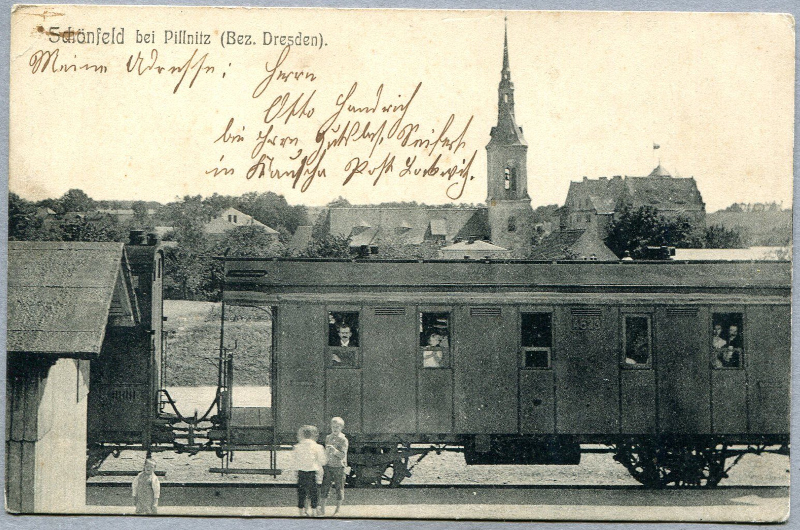 Schönfeld bei Pillnitz (Bez. Dresden).
Meine Adresse: Herrn
Otto Handrich
bei Herrn Gutsbes. Seifert
in Kautscha Post Lockwitz.